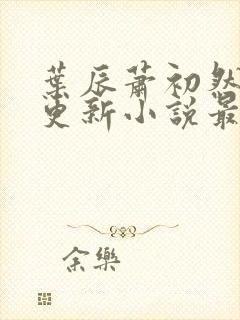 葉辰蕭初然
更新小說最
余樂